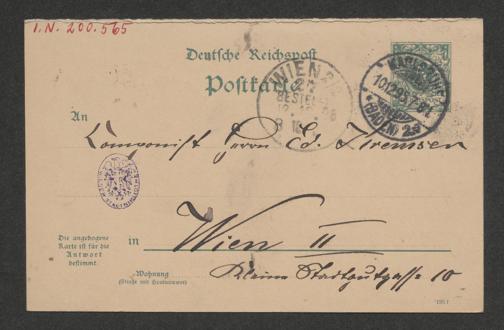 I.N. 200.565
Deutsche Reichspost
Postkarte
KARLSRUHE
(BADEN) 2a
WIEN
BESTELLT
An
Componist Herrn Ed. Kremsen
in Wien II
Kleine Stadtgutgasse 10
Die angebogene
Karte ist für die
Antwort
bestimmt.
Wohnung
(Straße und Hausnummer)